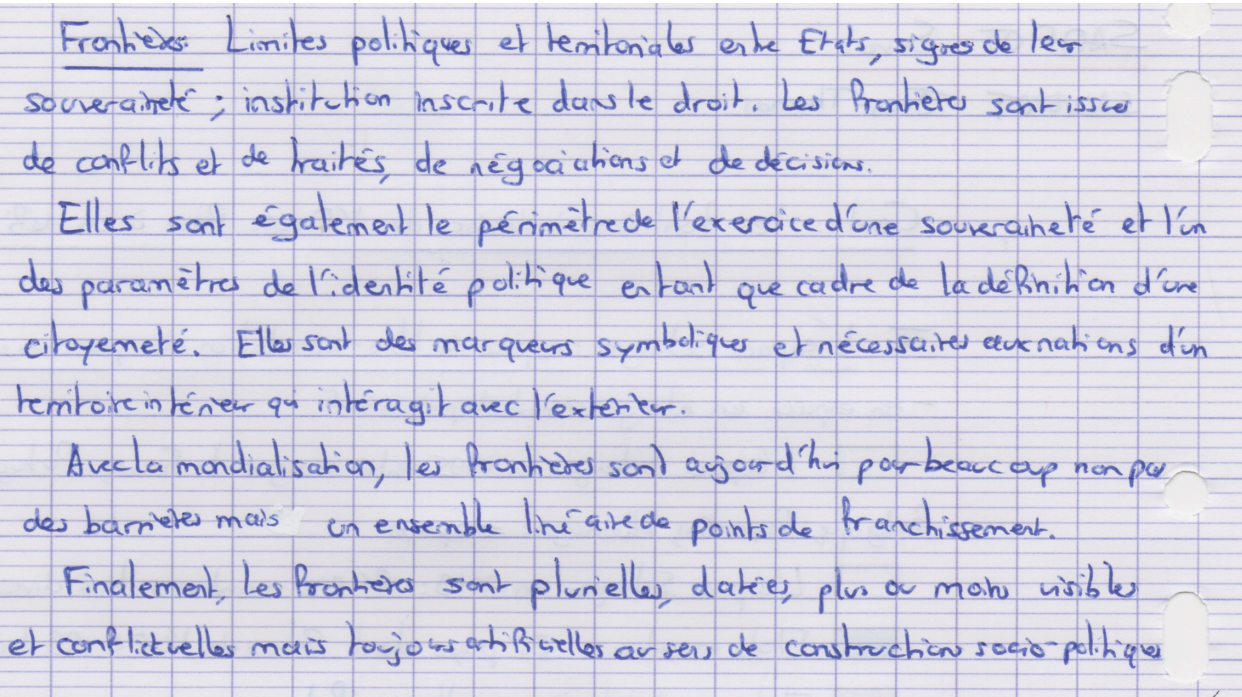 Frontières: Limites politiques et territoriales entre Etats, signes de leur
souveraineté ; institution inscrite dans le droit. Les frontières sont issues
de conflits et de traités, de négociations et de décisions.
Elles sont également le périmètre de l'exercice d'une souveraineté et l'un
des paramètres de l'identité politique en tant que cadre de la définition d'une
citoyenneté. Elles sont des marqueurs symboliques et nécessaires aux nations d'un
territoire intérieur qui intéragit avec l'extérieur.
Avec la mondialisation, les frontières sont aujourd'hui pour beaucoup non pas
des barrières mais un ensemble linéaire de points de franchissement.
Finalement, Les frontières sont plurielles, datées, plus ou moins visibles
et conflictuelles mais toujours artificielles au sens de constructions socio-politiques